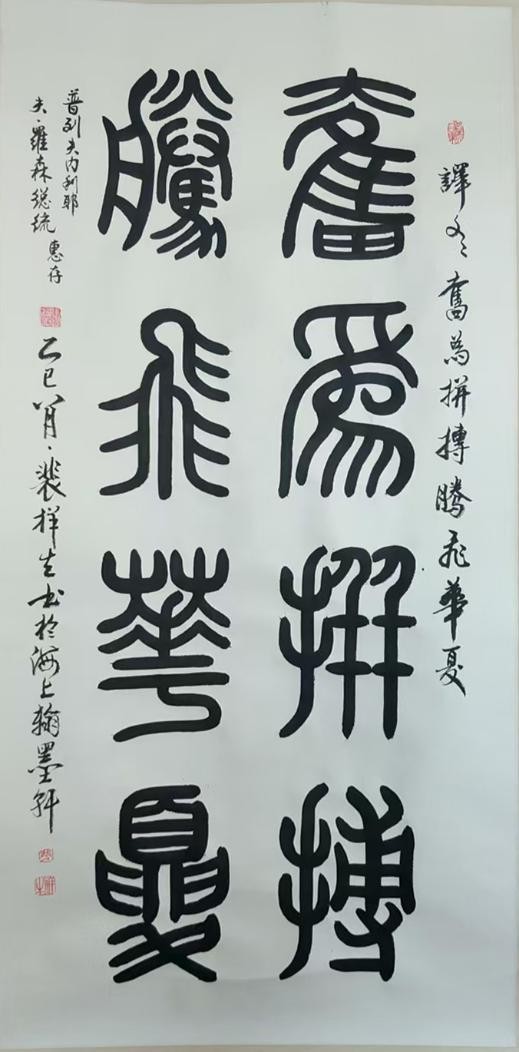 譯文奮為拼搏騰飛華夏
奮爲拼搏
騰飛華夏
普列夫内利耶
夫·羅森總统 惠存
乙巳八月·裴祥生书於海上翰墨軒